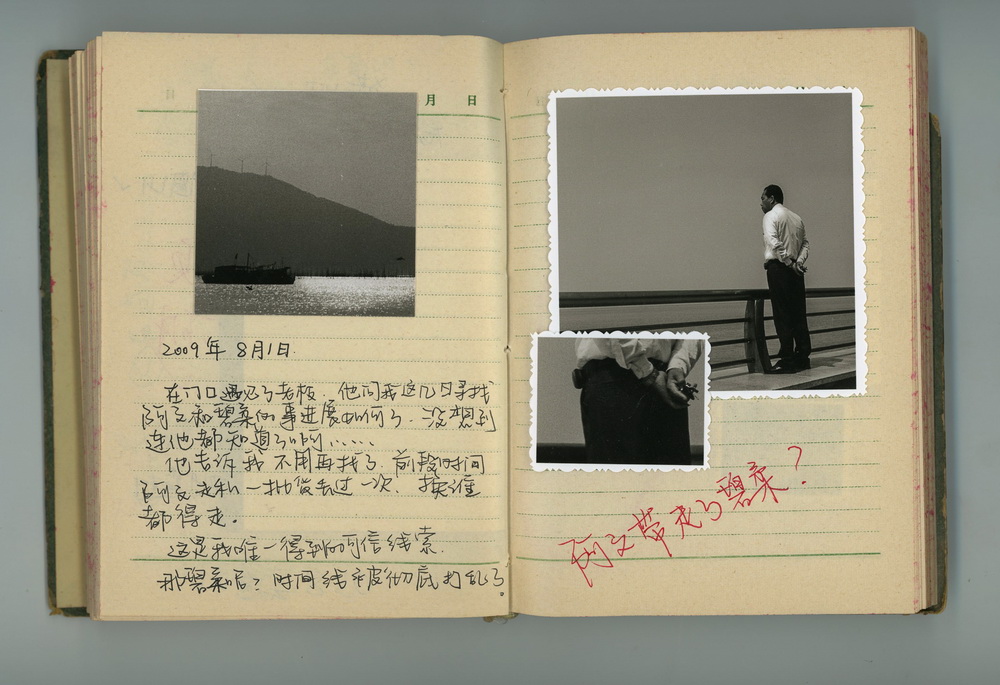 月 日
2009年 8月1日.
在门口遇见了老板. 他问我这几日寻找
阿文和碧柔的事进展如何了. 没想到
连他都知道了啊......
他告诉我不用再找了. 前段时间
阿文走私一批货去过一次. 换谁
都得走.
这是我唯一得到的可信线索.
那碧柔呢? 时间线又被彻底打乱了.
阿文带走了碧柔?